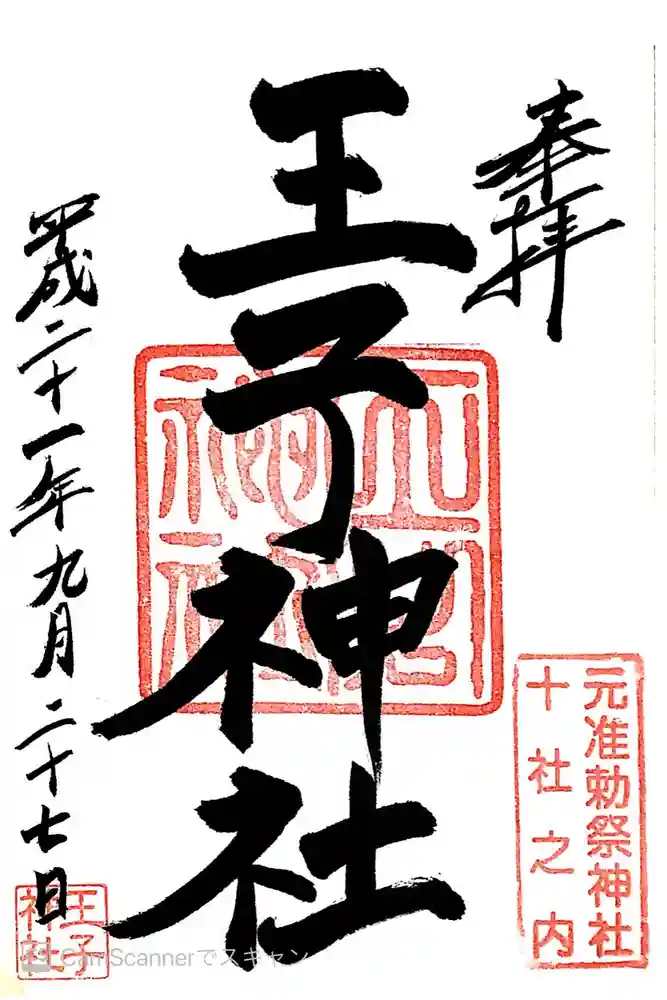 奉拝
王子神社
元准勅祭神社
十社之内
平成二十一年九月二十七日
王子
神社
CamScannerでスキャン